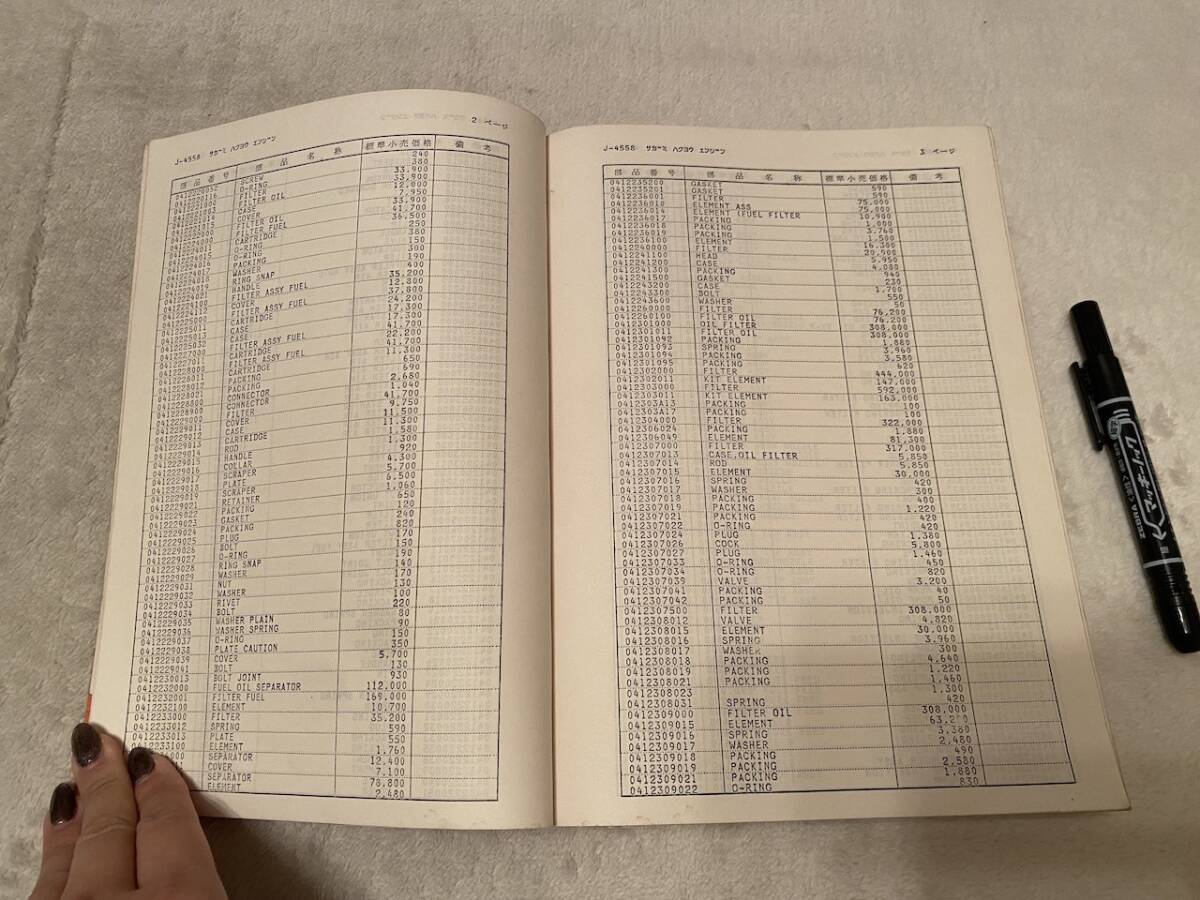 J-4558 サガミ ハクヨウ エンジン 2 ページ
部品番号 部品名称 標準小売価格 備考
0412220052 SCREW 240
0412220116 O-RING 380
0412221000 FILTER 33,900
0412221003 FILTER OIL 33,900
0412221014 CASE 12,000
0412221015 COVER 7,950
0412222000 FILTER OIL 33,900
0412224000 FILTER FUEL 41,700
0412224011 CARTRIDGE 36,500
0412224015 O-RING 250
0412224016 O-RING 380
0412224017 PACKING 150
0412224018 WASHER 300
0412224019 RING SNAP 190
0412224021 HANDLE 400
0412224100 FILTER ASSY FUEL 35,200
0412224112 COVER 12,800
0412225000 FILTER ASSY FUEL 37,800
0412225011 CARTRIDGE 24,200
0412225013 CASE 17,300
0412225032 CASE 17,300
0412227000 FILTER ASSY FUEL 41,700
0412227011 CARTRIDGE 22,200
0412228000 FILTER ASSY FUEL 41,700
0412228011 CARTRIDGE 11,300
0412228012 PACKING 650
0412228021 PACKING 690
0412228800 CONNECTOR 2,680
0412228900 CONNECTOR 1,040
0412229000 FILTER 41,700
0412229011 COVER 9,750
0412229012 CASE 11,500
0412229013 CARTRIDGE 11,300
0412229014 ROD 1,580
0412229015 HANDLE 1,300
0412229016 COLLAR 920
0412229017 SCRAPER 4,300
0412229018 PLATE 5,700
0412229019 SCRAPER 6,500
0412229021 RETAINER 1,060
0412229022 PACKING 650
0412229023 GASKET 120
0412229024 PACKING 240
0412229025 PLUG 820
0412229026 BOLT 170
0412229027 O-RING 150
0412229028 RING SNAP 190
0412229029 WASHER 140
0412229031 NUT 170
0412229032 WASHER 130
0412229033 RIVET 100
0412229034 BOLT 220
0412229035 WASHER PLAIN 80
0412229036 WASHER SPRING 90
0412229037 O-RING 150
0412229038 PLATE CAUTION 350
0412229039 COVER 5,700
0412229041 BOLT 130
0412230013 BOLT JOINT 930
0412232000 FUEL OIL SEPARATOR 112,000
0412232001 FILTER FUEL 169,000
0412232100 ELEMENT 10,700
0412233000 FILTER 35,200
0412233012 SPRING 590
0412233013 PLATE 550
0412233100 ELEMENT 1,760
SEPARATOR 12,400
COVER 7,100
SEPARATOR 78,800
ELEMENT 2,480
J-4558 サガミ ハクヨウ エンジン 3 ページ
部品番号 部品名称 標準小売価格 備考
0412235200 GASKET 590
0412235201 GASKET 590
0412236001 FILTER 75,000
0412236010 ELEMENT ASS 75,000
0412236014 ELEMENT (FUEL FILTER 10,900
0412236017 PACKING 1,000
0412236018 PACKING 3,760
0412236019 PACKING 1,500
0412236100 ELEMENT 16,300
0412240000 FILTER 20,900
0412241100 HEAD 5,950
0412241200 CASE 4,080
0412241300 PACKING 940
0412241500 GASKET 230
0412243200 CASE 1,700
0412243300 BOLT 550
0412243600 WASHER 50
0412260000 FILTER 76,200
0412260100 FILTER OIL 76,200
0412301000 OIL FILTER 308,000
0412301011 FILTER OIL 308,000
0412301092 PACKING 1,880
0412301093 SPRING 3,960
0412301094 PACKING 3,580
0412301095 PACKING 620
0412302000 FILTER 444,000
0412302011 KIT ELEMENT 147,000
0412303000 FILTER 592,000
0412303011 KIT ELEMENT 163,000
0412303A13 PACKING 100
0412303A17 PACKING 100
0412304000 FILTER 322,000
0412306024 PACKING 1,880
0412306049 ELEMENT 81,300
0412307000 FILTER 317,000
0412307013 CASE,OIL FILTER 5,850
0412307014 ROD 5,850
0412307015 ELEMENT 30,000
0412307016 SPRING 420
0412307017 WASHER 300
0412307018 PACKING 400
0412307019 PACKING 1,220
0412307021 PACKING 420
0412307022 O-RING 420
0412307024 PLUG 1,380
0412307026 COCK 5,800
0412307027 PLUG 1,460
0412307033 O-RING 450
0412307034 O-RING 820
0412307039 VALVE 3,200
0412307041 PACKING 40
0412307042 PACKING 50
0412307500 FILTER 308,000
0412308012 VALVE 4,820
0412308015 ELEMENT 30,000
0412308016 SPRING 3,960
0412308017 WASHER 300
0412308018 PACKING 4,640
0412308019 PACKING 1,220
0412308021 PACKING 1,460
0412308023 1,300
0412308031 SPRING 420
0412309000 FILTER OIL 308,000
0412309015 ELEMENT
0412309016 SPRING 3,380
0412309017 WASHER 2,480
0412309018 PACKING 490
0412309019 PACKING 2,580
0412309021 PACKING 1,880
0412309022 O-RING 830
ハイマッキー
ZEBRA